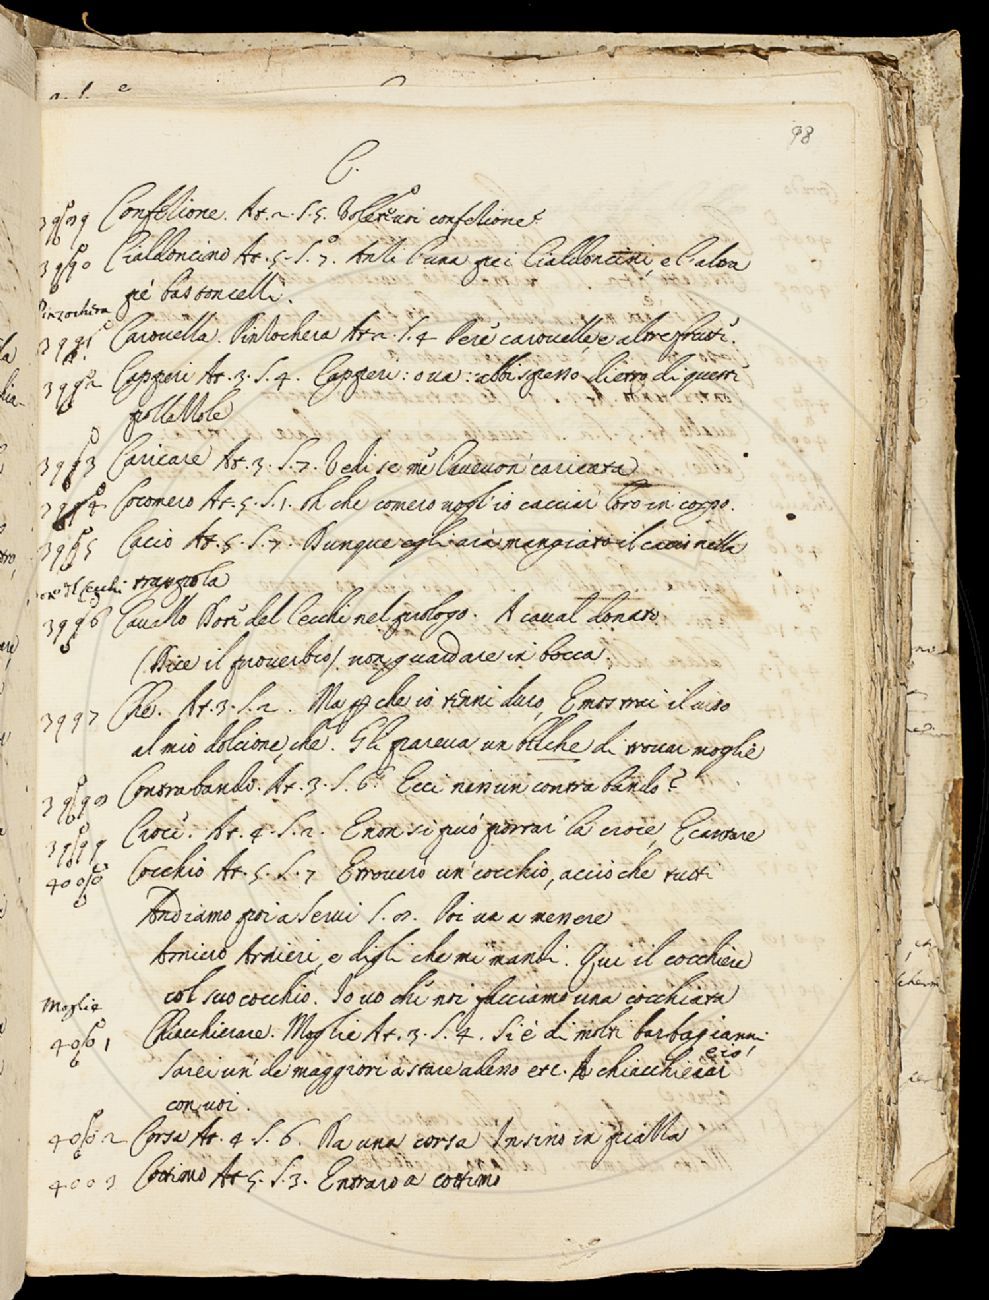 98
C.
3989 Confezione. At. 2. S. 5. confezione?
3990 Cialdoncino At. 5. S. 7. Anzi l'una pei Cialdoncini, e l'altra
pe' bastoncelli.
Pinzochera
3991 Carouella. Pinzochera At. 2. S. 4 Pere carouelle, e altre frutte.
3992 Capperi At. 3. S. 4. Capperi: oua: spesso dietro di questi
3993 Caricare At. 3. S. 7. Vedi se me l'aueuon' caricata
3994 Cocomero At. 5. S. 1. Oh che comero vogl'io cacciar loro in corpo.
3995 Cacio At. 5. S. 7. Dunque egli aià mangiato il cacio nella
trappola
del Cecchi
3996 Cauallo Dori del Cecchi nel prologo. A caual donato
(Dice il prouerbio) non guardare in bocca
3997 Che. At. 3. S. 2. Ma che io tenni duro, E mostrai il uiso
al mio dolcione, che. Gli pareua un bel che di trouar moglie
3998 Contrabando. At. 3. S. 6. Ecci nessun contrabando?
3999 Croce. At. 4. S. 2. E non si può portar la croce, E cantare
4000 Cocchio At. 5. S. 7 E trouerò un' cocchio, acciò che tutti
Andiamo poi a Serui S. 8. Poi ua a menere
Amico e digli che mi mandi. Qui il cocchiere
col suo cocchio. Io uo che noi facciamo una cocchiata
Moglie
4001 Chiacchierare. Moglie At. 3. S. 4. Si è di molti barbagianni
Sarei un' de maggiori a stare adesso etc. A chiacchierar
con uoi.
4002 Corsa At. 4 S. 6. Da una corsa Insino in piazza
4003 Cottimo At. 5. S. 3. Entrato a cottimo